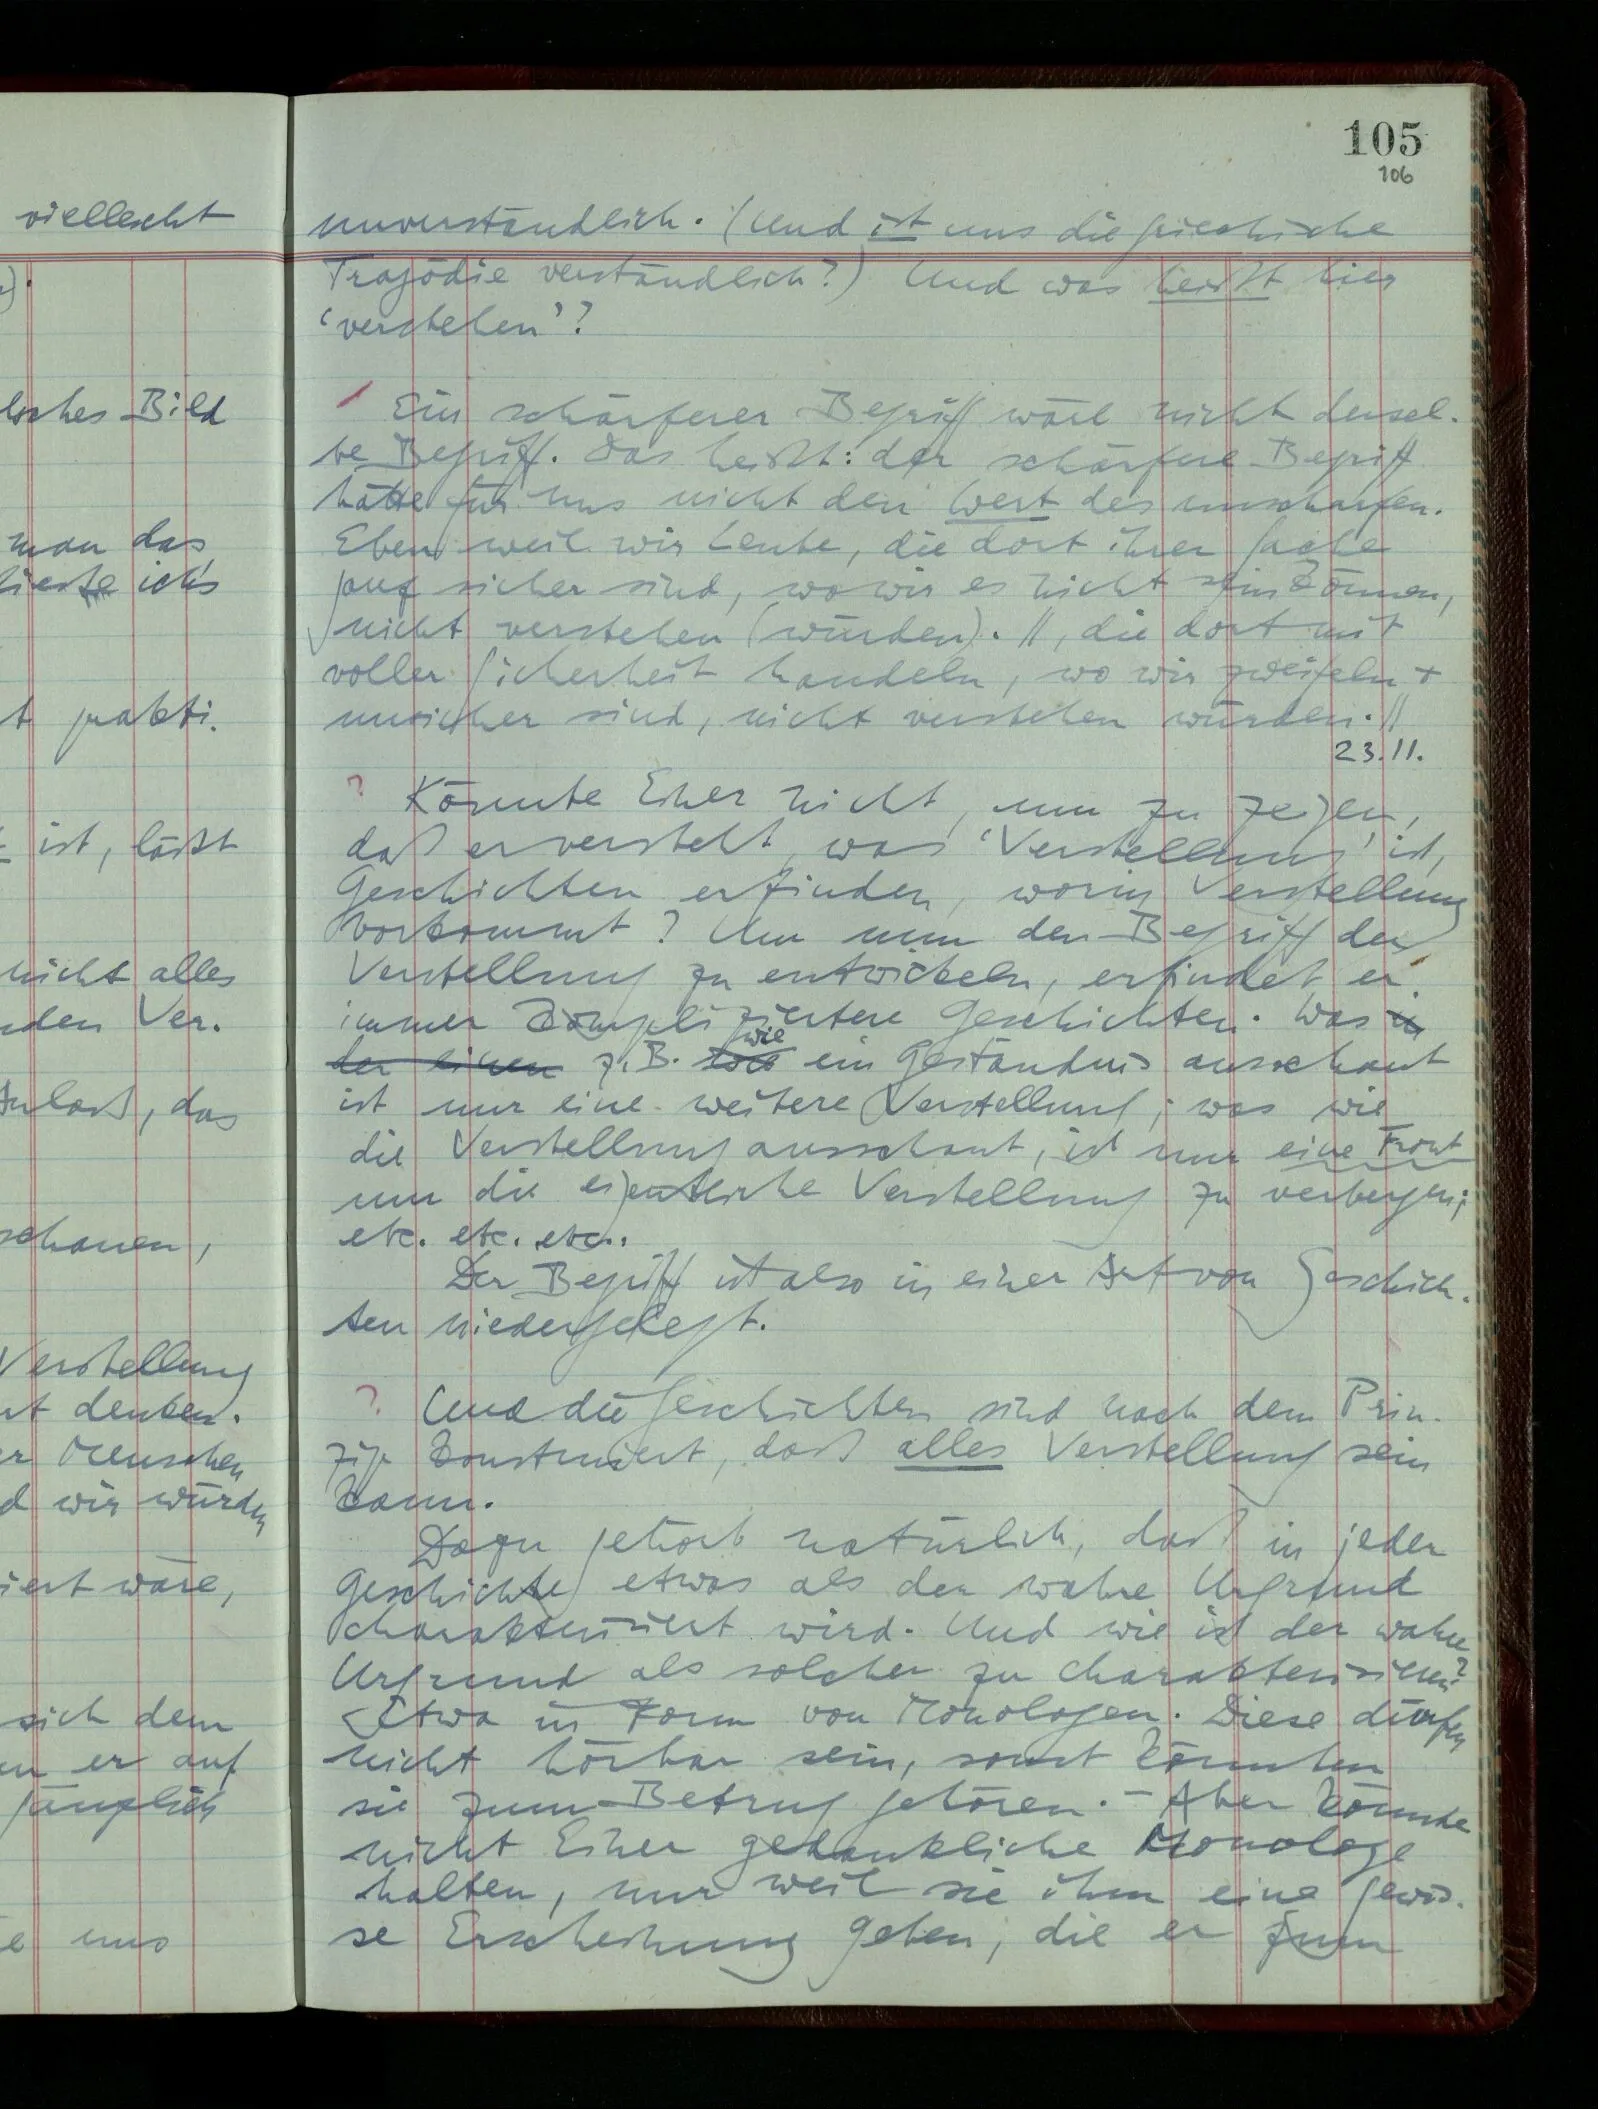 vielleicht
lisches Bild
man das
ich's
t prakti-
ist, läßt
nicht alles
nden Ver-
Anlaß, das
schauen,
Verstellung
rt denken.
er Menschen
d wir würden
iert wäre,
sich dem
er auf
e uns
105
106
unverständlich. (Und ist uns die griechische
Tragödie verständlich?) Und was heißt hier
'verstehen'?
/ Ein schärferer Begriff wäre nicht dersel-
be Begriff. Das heißt: der schärfere Begriff
hätte für uns nicht den Wert des unscharfen.
Eben weil wir Leute, die dort ihrer Sache
sicher sind, wo wir es nicht sein können,
nicht verstehen (würden). //, die dort mit
voller Sicherheit handeln, wo wir zweifeln +
unsicher sind, nicht verstehen würden. //
23.11.
? Könnte Einer nicht, um zu zeigen,
daß er versteht, was 'Verstellung' ist,
Geschichten erfinden, worin Verstellung
vorkommt? Um nun den Begriff der
Verstellung zu entwickeln, erfindet er
immer kompliziertere Geschichten. Was in
der einen z.B. wie ein Geständnis ausschaut
ist nur eine weitere Verstellung; was wie
die Verstellung ausschaut, ist nur eine Front
um die eigentliche Verstellung zu verbergen;
etc. etc. etc..
Der Begriff ist also in einer Art von Geschich-
ten niedergelegt.
? Und die Geschichten sind nach dem Prin-
zip konstruiert, daß alles Verstellung sein
kann.
Dazu gehört natürlich, daß in jeder
Geschichte etwas als der wahre Urgrund
charakterisiert wird. Und wie ist der wahre
Urgrund als solcher zu charakterisieren?
Etwa in Form von Monologen. Diese dürfen
nicht hörbar sein, sonst könnten
sie zum Betrug gehören. – Aber könnte
nicht Einer gedankliche Monologe
halten, nur weil sie ihm eine gewis-
se Erscheinung geben, die er zum